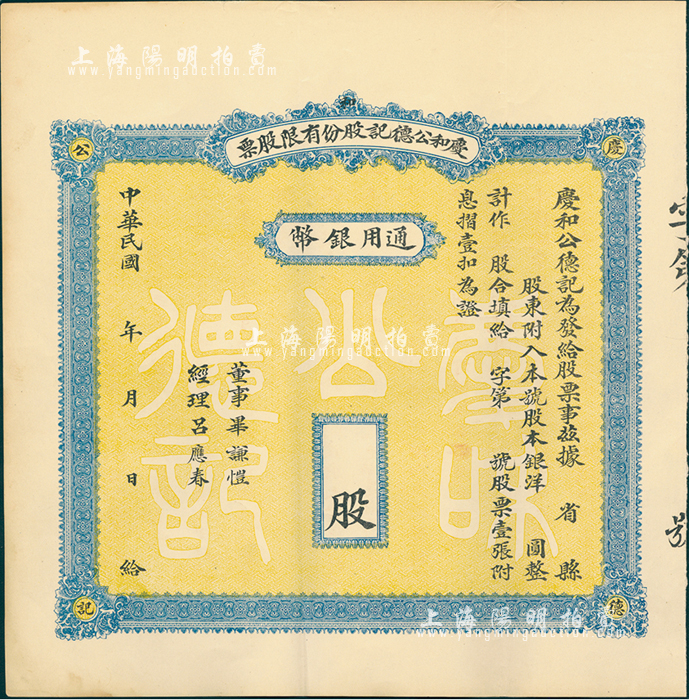 上海陽明拍賣
www.yangmingauction.com
和
慶和公德記股份有限股票
慶
公
通用銀幣
慶和公德記為發給股票事茲據 省 縣
股東附入本號股本銀洋 圓整
計作 股合填給 字第 號股票壹張附
息摺壹扣為證
股
董事畢謙愷
經理呂應春
中華民國 年 月 日 給
慶和
公
德記
上海陽明拍賣
www.yangmingauction.com
德
記
字第
號
上海陽明拍賣
www.yangmingauction.com